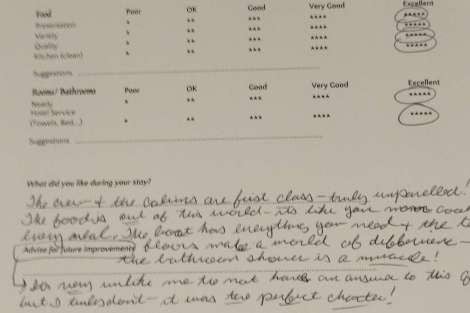 Food Poor OK Good Very Good Excellent
Presentation * ** *** **** *****
Variety * ** *** **** *****
Quality * ** *** **** *****
Kitchen (clean) * ** *** **** *****
Suggestions
Rooms/ Bathrooms Poor OK Good Very Good Excellent
Ready * ** *** **** *****
Hotel Service
(Towels, Bed,..) * ** *** **** *****
Suggestions
What did you like during your stay?
The crew & the cabins are first class - truly unparelled!
The food is out of this world - its like your
every meal. The boat has everything you need & the
Advise for future improvements floors make a world of difference -
the bathroom shower is a miracle!
Its very unlike me to not have an answer to this
but I don't - it was the perfect charter!